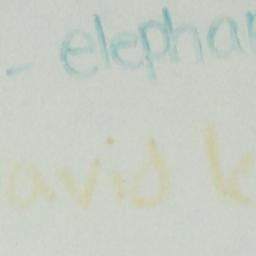 - elephan
avid k